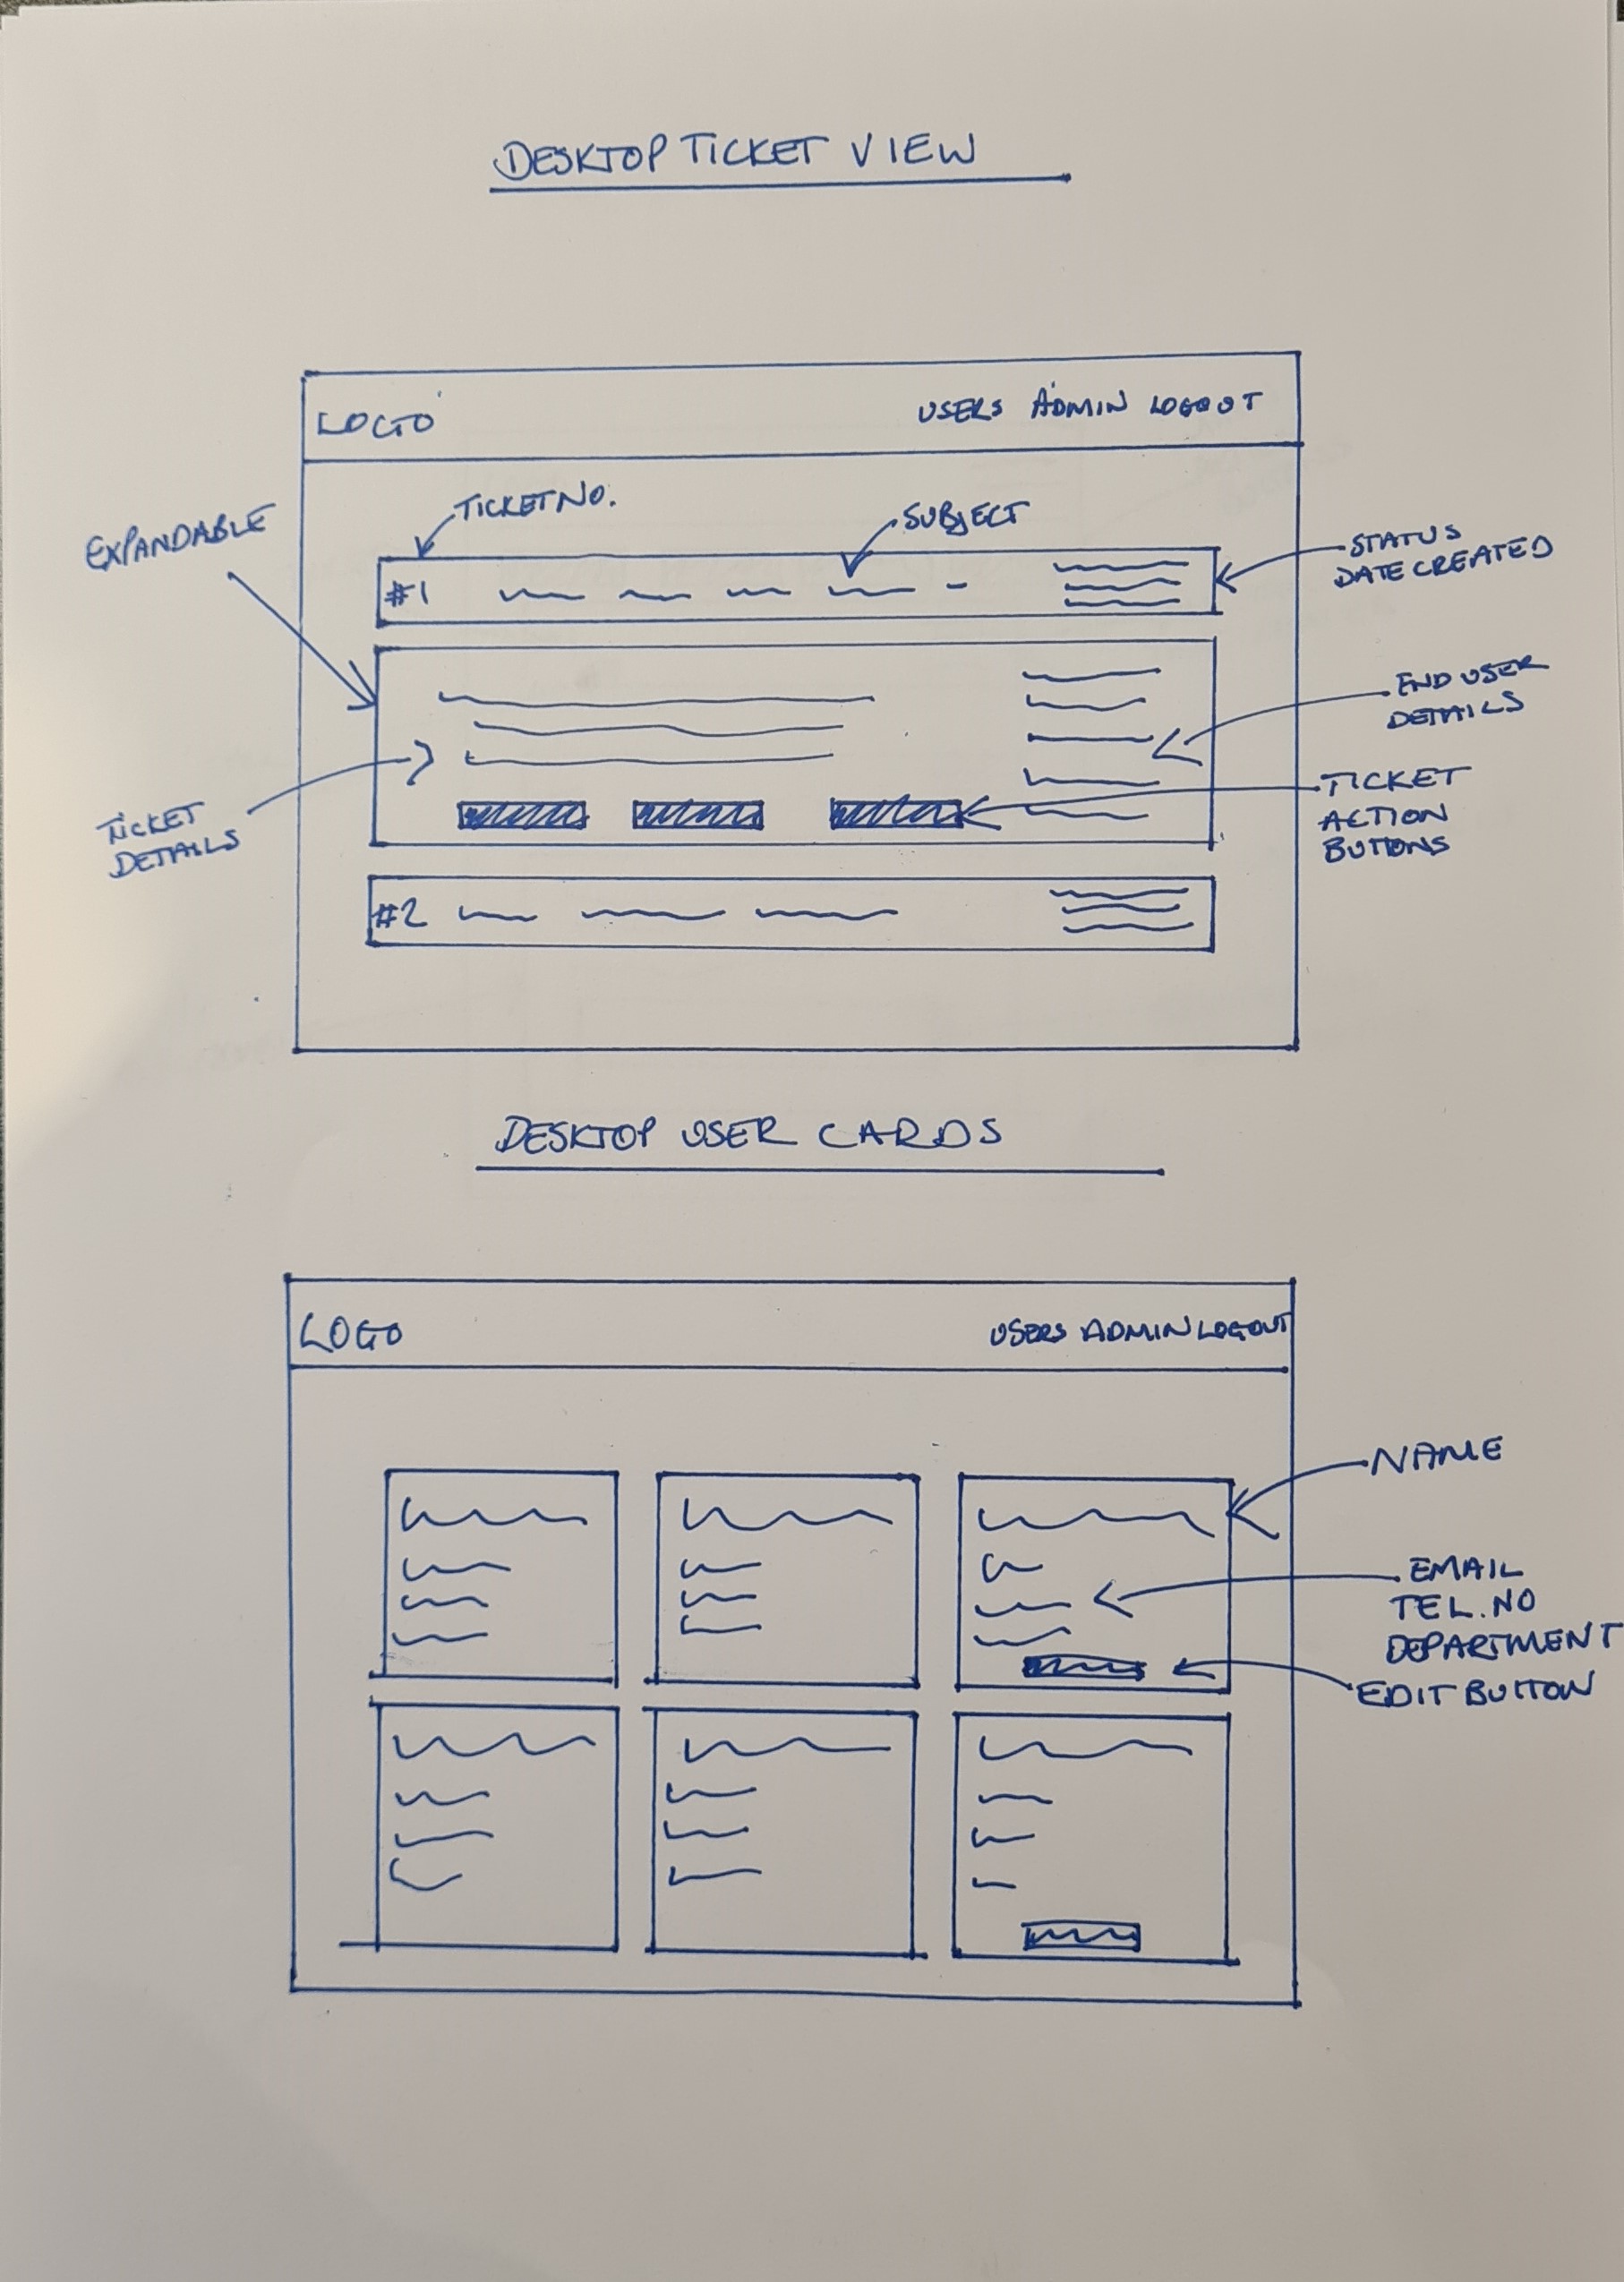 DESKTOP TICKET VIEW
LOGO
USERS ADMIN LOGOUT
TICKET NO.
SUBJECT
EXPANDABLE
STATUS
DATE CREATED
#1
END USER
DETAILS
TICKET
DETAILS
TICKET
ACTION
BUTTONS
#2
DESKTOP USER CARDS
LOGO
USERS ADMIN LOGOUT
NAME
EMAIL
TEL. NO
DEPARTMENT
EDIT BUTTON